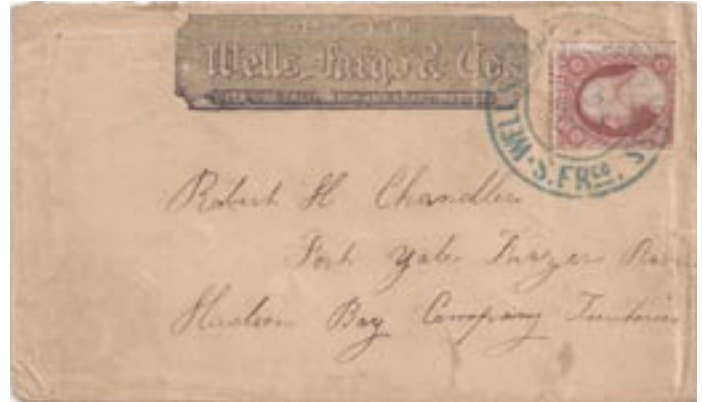 Wells, Fargo & Co.
WELLS
S. FRco.
Robert H Chandler
Fort Yale Frazer River
Hudson Bay Company Territories